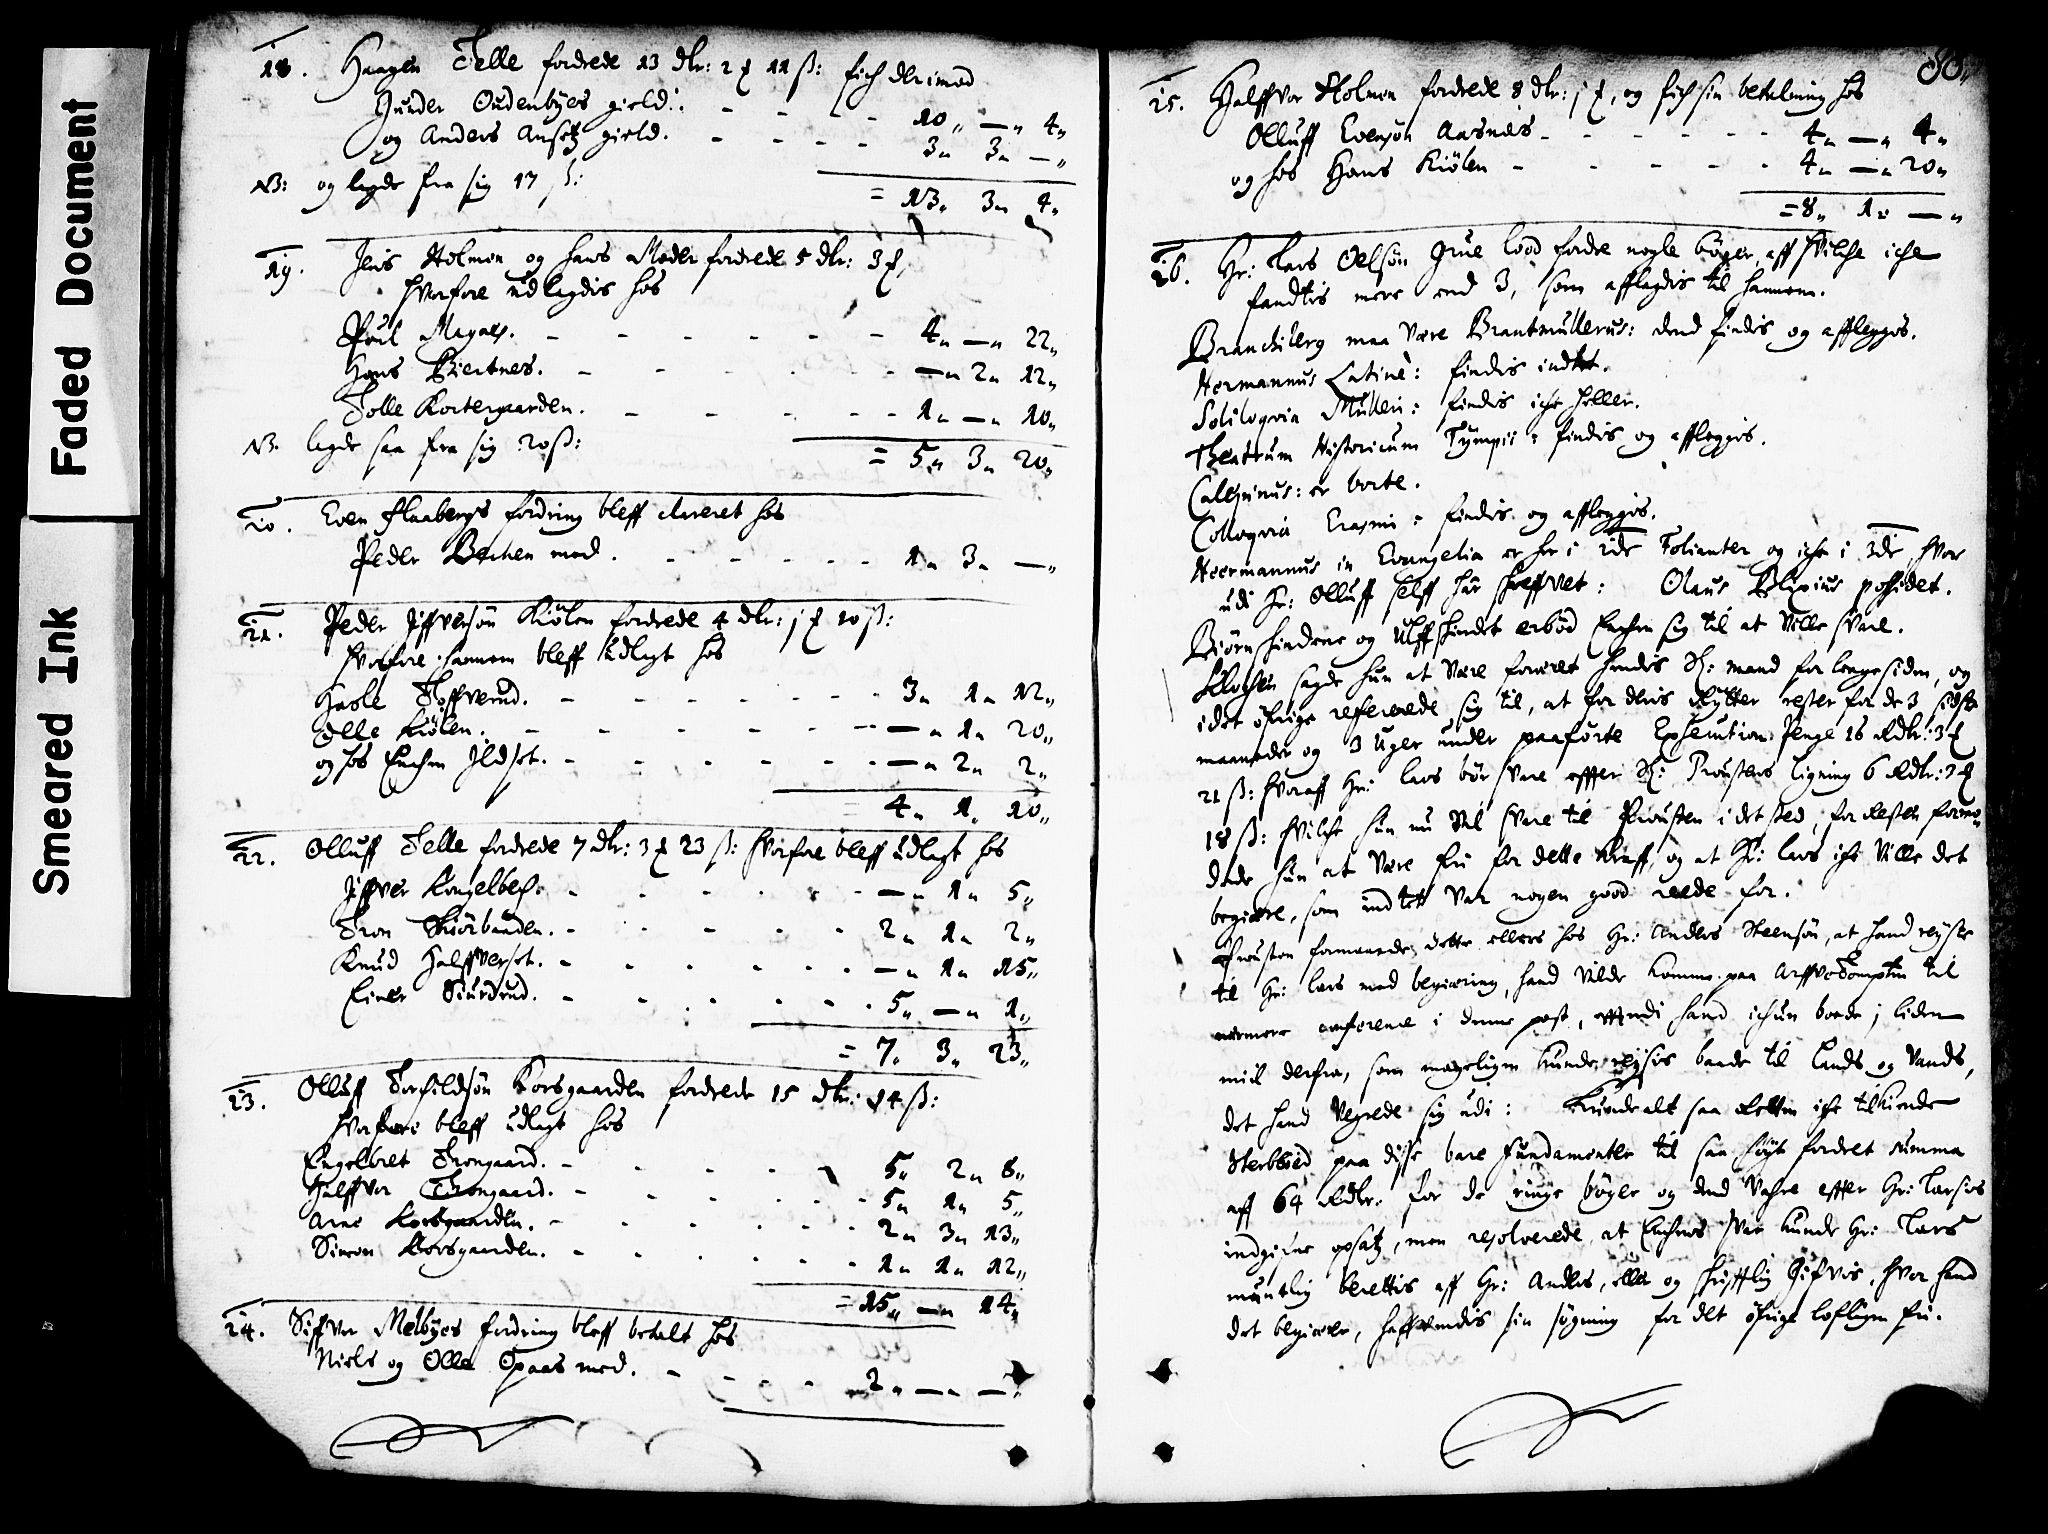 Faded Document
Smeared Ink
18. Haagen Telle fordrede 13 dlr: 2 ƶ 11 ß: fich der imod
Gunder Oudenbyes gield:. - - - - 10 „ — „ 4 „
og Anders Ansetz gield. - - - - 3 „ 3 „ — „
NB: og legde fra sig 17 ß:
= 13 „ 3 „ 4 „
19. Jens Holmen og hans Moder fordrede 5 dlr: 3 ƶ,
hvorfore udlagdis hos
Poul - - - - - - 4 „ — „ 22 „
Hans Biertnes. - - - - - — „ 2 „ 12 „
Tolle Kortergaarden. - - - - - 1 „ — „ 10 „
NB. legde saa fra sig 20 ß:
= 5 „ 3 „ 20 „
20. Even Flaabergs fordring bleff clareret hos
Peder Bechen med. - - - - - - 1 „ 3 „ — „
21. Peder Iffversøn Kiølen fordrede 4 dlr: j ƶ 10 ß:
hvorfore hannem bleff udlagt hos
Hasle Toffverud. - - - - - - 3 „ 1 „ 12 „
Olle Kiølen. - - - - - - — „ 1 „ 20 „
og hos Enchen Ildset. - - - - - — „ 2 „ 2 „
4 „ 1 „ 10 „
22. Olluff Telle fordrede 7 dlr: 3 ƶ 23 ß: hvorfore bleff udlagt hos
Iffver Kongelbech. - - - - - — „ 1 „ 5 „
Tron Skiørbunden. - - - - - 2 „ 1 „ 2 „
Knud Halffverset. - - - - - — „ 1 „ 15 „
Einer Siurdrud. - - - - - 5 „ — „ 1 „
= 7 „ 3 „ 23 „
23. Olluff Torkildsøn Korsgaarden fordrede 15 dlr: 14 ß:
hvorfore bleff udlagt hos
Engelbret Trongaard. - - - - 5 „ 2 „ 8 „
Halffvor Trongaard. - - - - - 5 „ 1 „ 5 „
Arne Korsgaarden. - - - - - 2 „ 3 „ 13 „
Simon Korsgaarden. - - - - - 1 „ 1 „ 12 „
= 15 „ — „ 14 „
24. Siffver Melbyes fordring bleff betalt hos
Niels og Olle Opaas med. - - - - 2 „ — „ — „
80
25. Halffvor Holmen fordrede 8 dlr: j ƶ, og fich sin betalning hos
Olluff Evensøn Aasnæs - - - - - 4 „ — „ 4 „
og hos Hans Kiølen - - - - - 4 „ — „ 20 „
= 8 „ 1 „ — „
26. Hr: Lars Oelsøn Grue lood fordre nogle bøger, aff hvilche iche
fandtis mere end 3, som afflagdis til hannem.
Branchiberg maa være Brantmullerus: dend findis og affleggis.
Hermannus Latine: findis indtet.
Soliloqvia Mulleri: findis iche heller.
Theatrum Historicum Tympii: findis og affleggis.
Calepinus: er borte.
Colloqvia Erasmi: findis og affleggis.
Heermannus in Evangelia er her i 2de Folianter og iche i 3de, hvor
udi Hr: Olluff selff har skreffvet: Olaus possidet.
Biørnskindene og Ulffskindet erbød Enchen sig til at ville svare.
Klochen sagde hun at være foræret hendis Sl: mand for lenge siden, og
i det øfrige refererede sig til, at for deris Rytter rester for de 3 sidste
maaneder og 3 Uger under paaførte Execution-Penge 16 Rdlr: 3 ƶ
21 ß: hvoraff Hr: Lars bør svare effter Sl: Proustens ligning 6 Rdlr: 2 ƶ
18 ß: hvilche hun nu vil svare til Prousten i det sted, for Resten formo-
dede hun at være frii for dette kraff, og at Hr: Lars iche ville det
begiære, som indtet var nogen good reede for.
Prousten formaaede dette ellers hos Hr: Anders Steensøn, at hand reyste
til Hr: Lars med begiæring, hand vilde komme paa Arffve Tompten til
nærmere conference i denne post, efftterdi hand ichun boede j liden
miil derfra, som mageligen kunde reysis baade til lands og vands,
det hand vegrede sig udi: Kunde alt saa Retten iche tilkiende
Sterbboed paa disse bare fundamenter til saa høyt fordret summa
aff 64 Rdlr: for de ringe bøger og dend vahre effter Hr: Larsis
indgifne opsatz, men resolverede, at Enchens svar kunde Hr: Lars
mundtlig berettis aff Hr: Anders, eller og skrifftlig gifvis, hvor hand
det begiærer, haffvendis sin søgning for det øfrige lofligen frii.